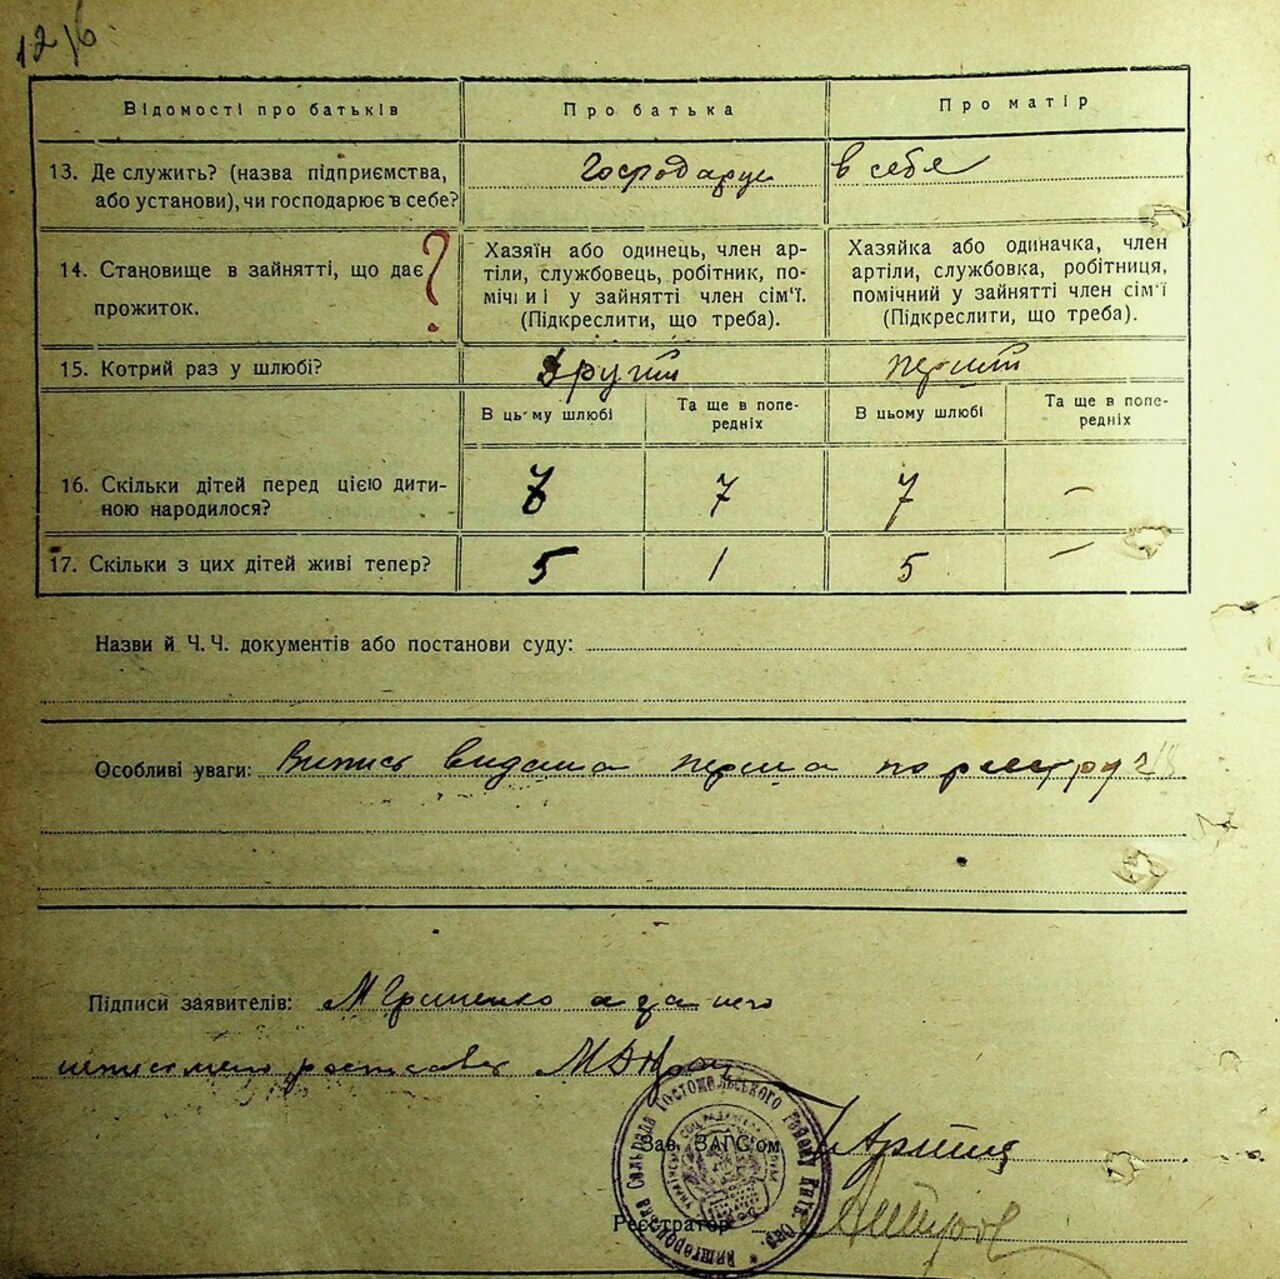 12/6
Відомості про батьків
Про батька
Про матір
13. Де служить? (назва підприємства,
або установи), чи господарює в себе?
Господарює в себя
14. Становище в зайнятті, що дає
прожиток.
?
Хазяїн або одинець, член ар-
тілі, службовець, робітник, по-
мічн и і у зайнятті член сім'ї.
(Підкреслити, що треба).
Хазяйка або одиначка, член
артіли, службовка, робітниця,
помічний у зайнятті член сім'ї
(Підкреслити, що треба).
15. Котрий раз у шлюбі?
другий
перший
В цьому шлюбі
Та ще в попе-
редніх
В цьому шлюбі
Та ще в попе-
редніх
16. Скільки дітей перед цією дити-
ною народилося?
7
7
—
17. Скільки з цих дітей живі тепер?
5
1
5
—
Назви й Ч. Ч. документів або постанови суду:
Особливі уваги: Випись видана перша по реєстру
Підписи заявителів: М Гриненко а за його
неписьмено росписався
Зав. ЗАГС'ом
Реєстратор
Вишгородська Сільрада Гостомельського Району Київ. Окр.